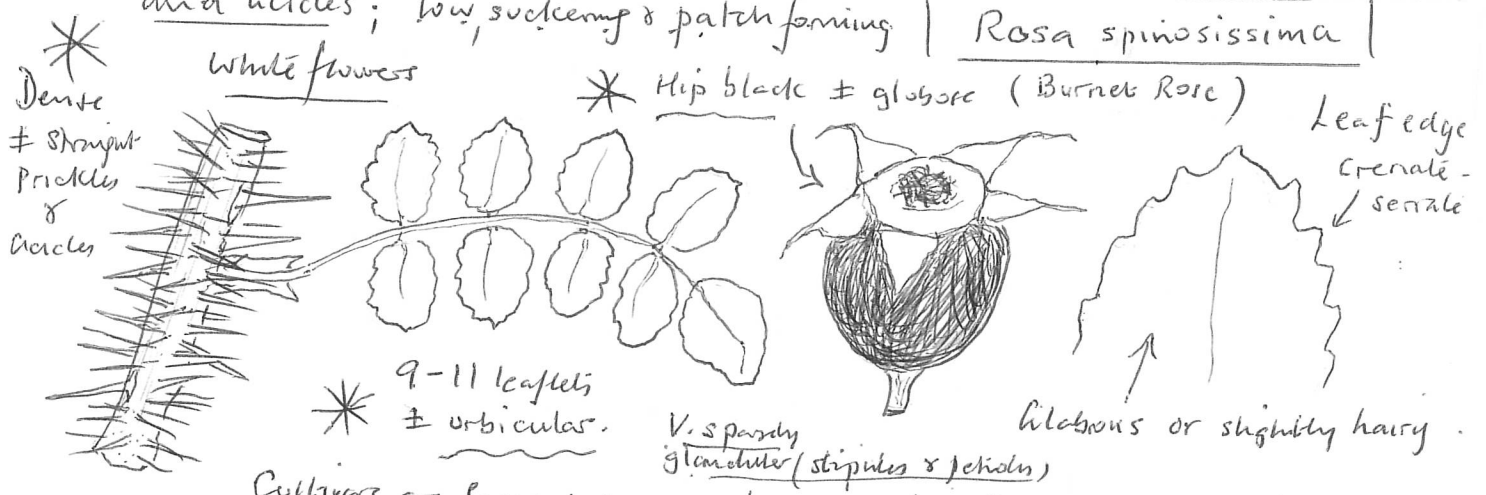 and acicles; low, suckering & patch forming
Rosa spinosissima
White flowers
Hip black ± globose (Burnet Rose)
Dense
± straight
Prickles
&
acicles
Leaf edge
crenate-
serrate
9-11 leaflets
± orbicular.
V. sparsely
glandular (stipules & petioles)
Glabrous or slightly hairy.
Cultivars